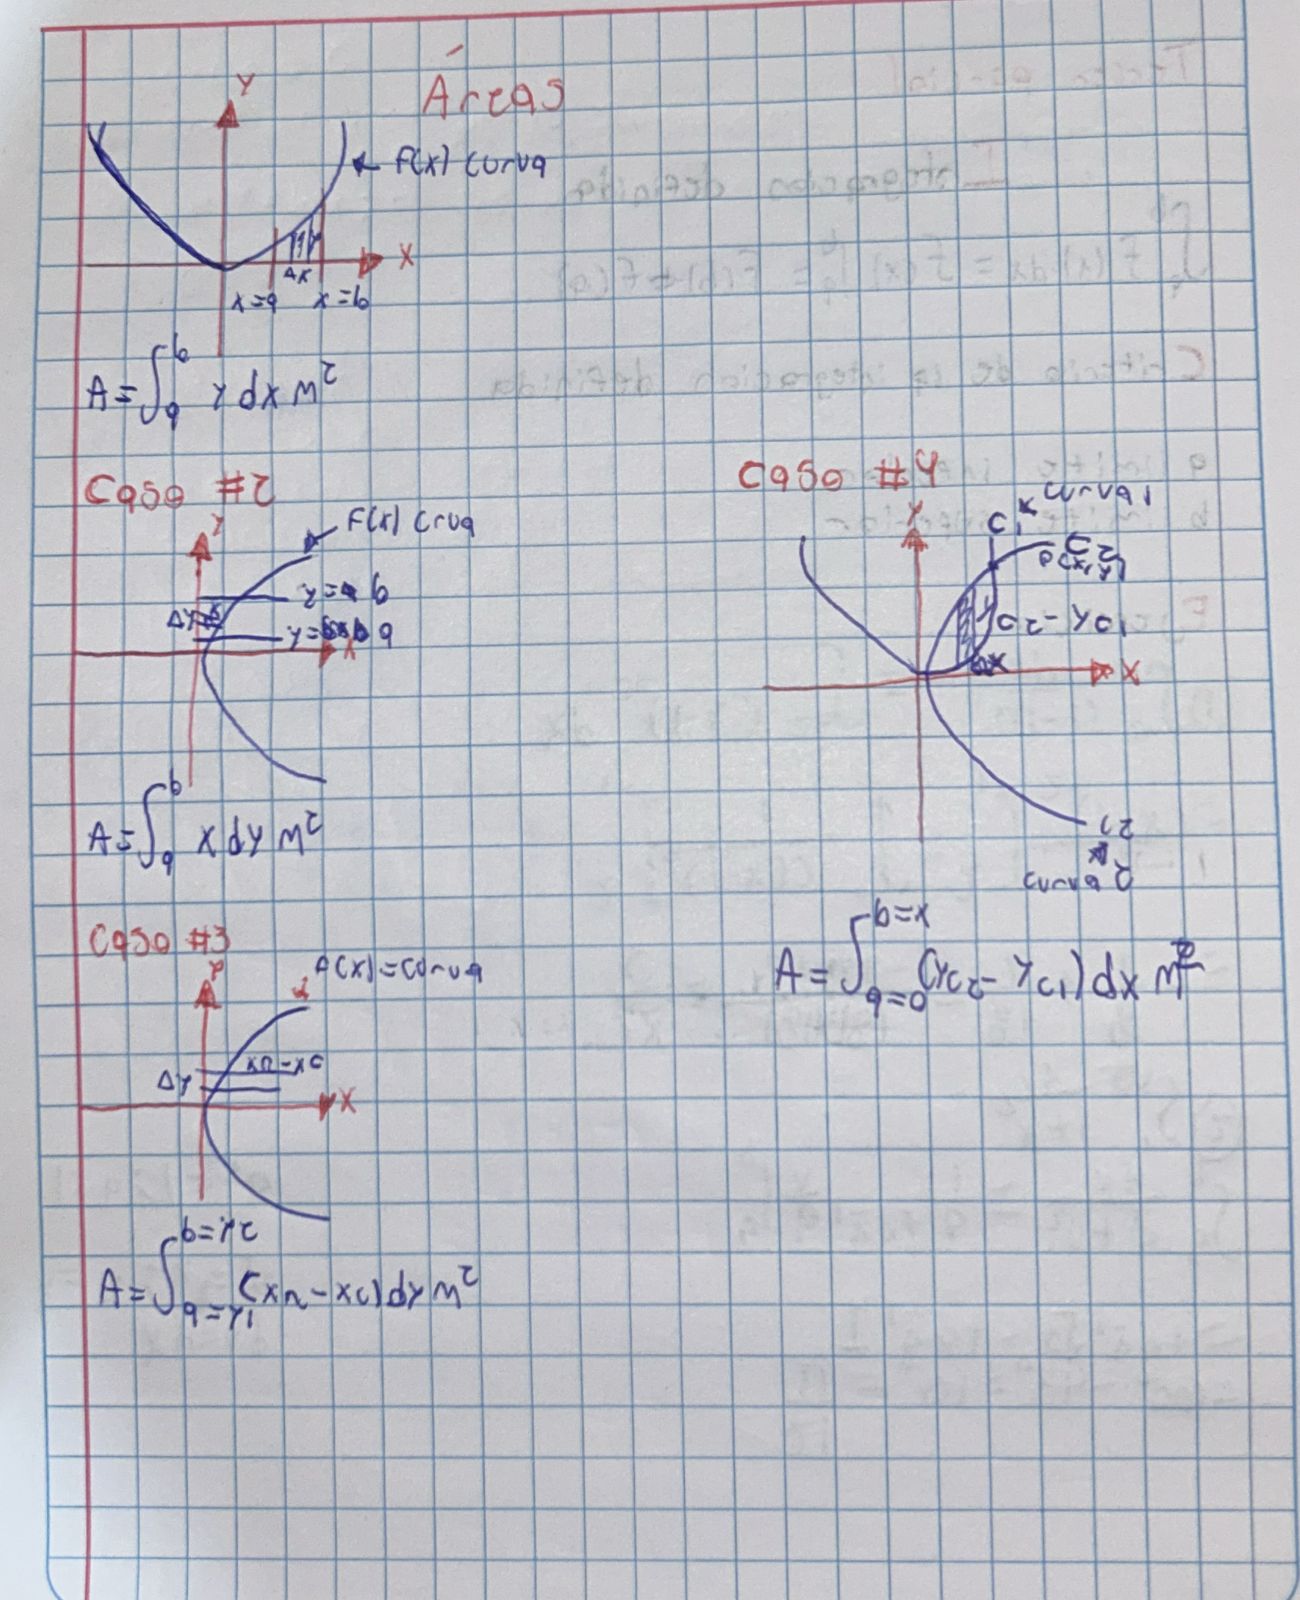 Áreas
Y
F(x) curva
X
Δx
x=a x=b
A=∫ₐᵇ y dx m²
Caso #2
Y
F(x) Crva
y= b
ΔY
y= a
X
A=∫ₐᵇ x dy m²
Caso #3
Y
F(x)=curva
xn-xc
ΔY
X
b=y2
A=∫ (xn-xc)dy m²
a=y1
Caso #4
curva 1
Y
C1
C2
P(x,y)
yc2-yc1
Δx
X
C2
curva 2
b=x
A=∫ (yc2-yc1)dx m²
a=0